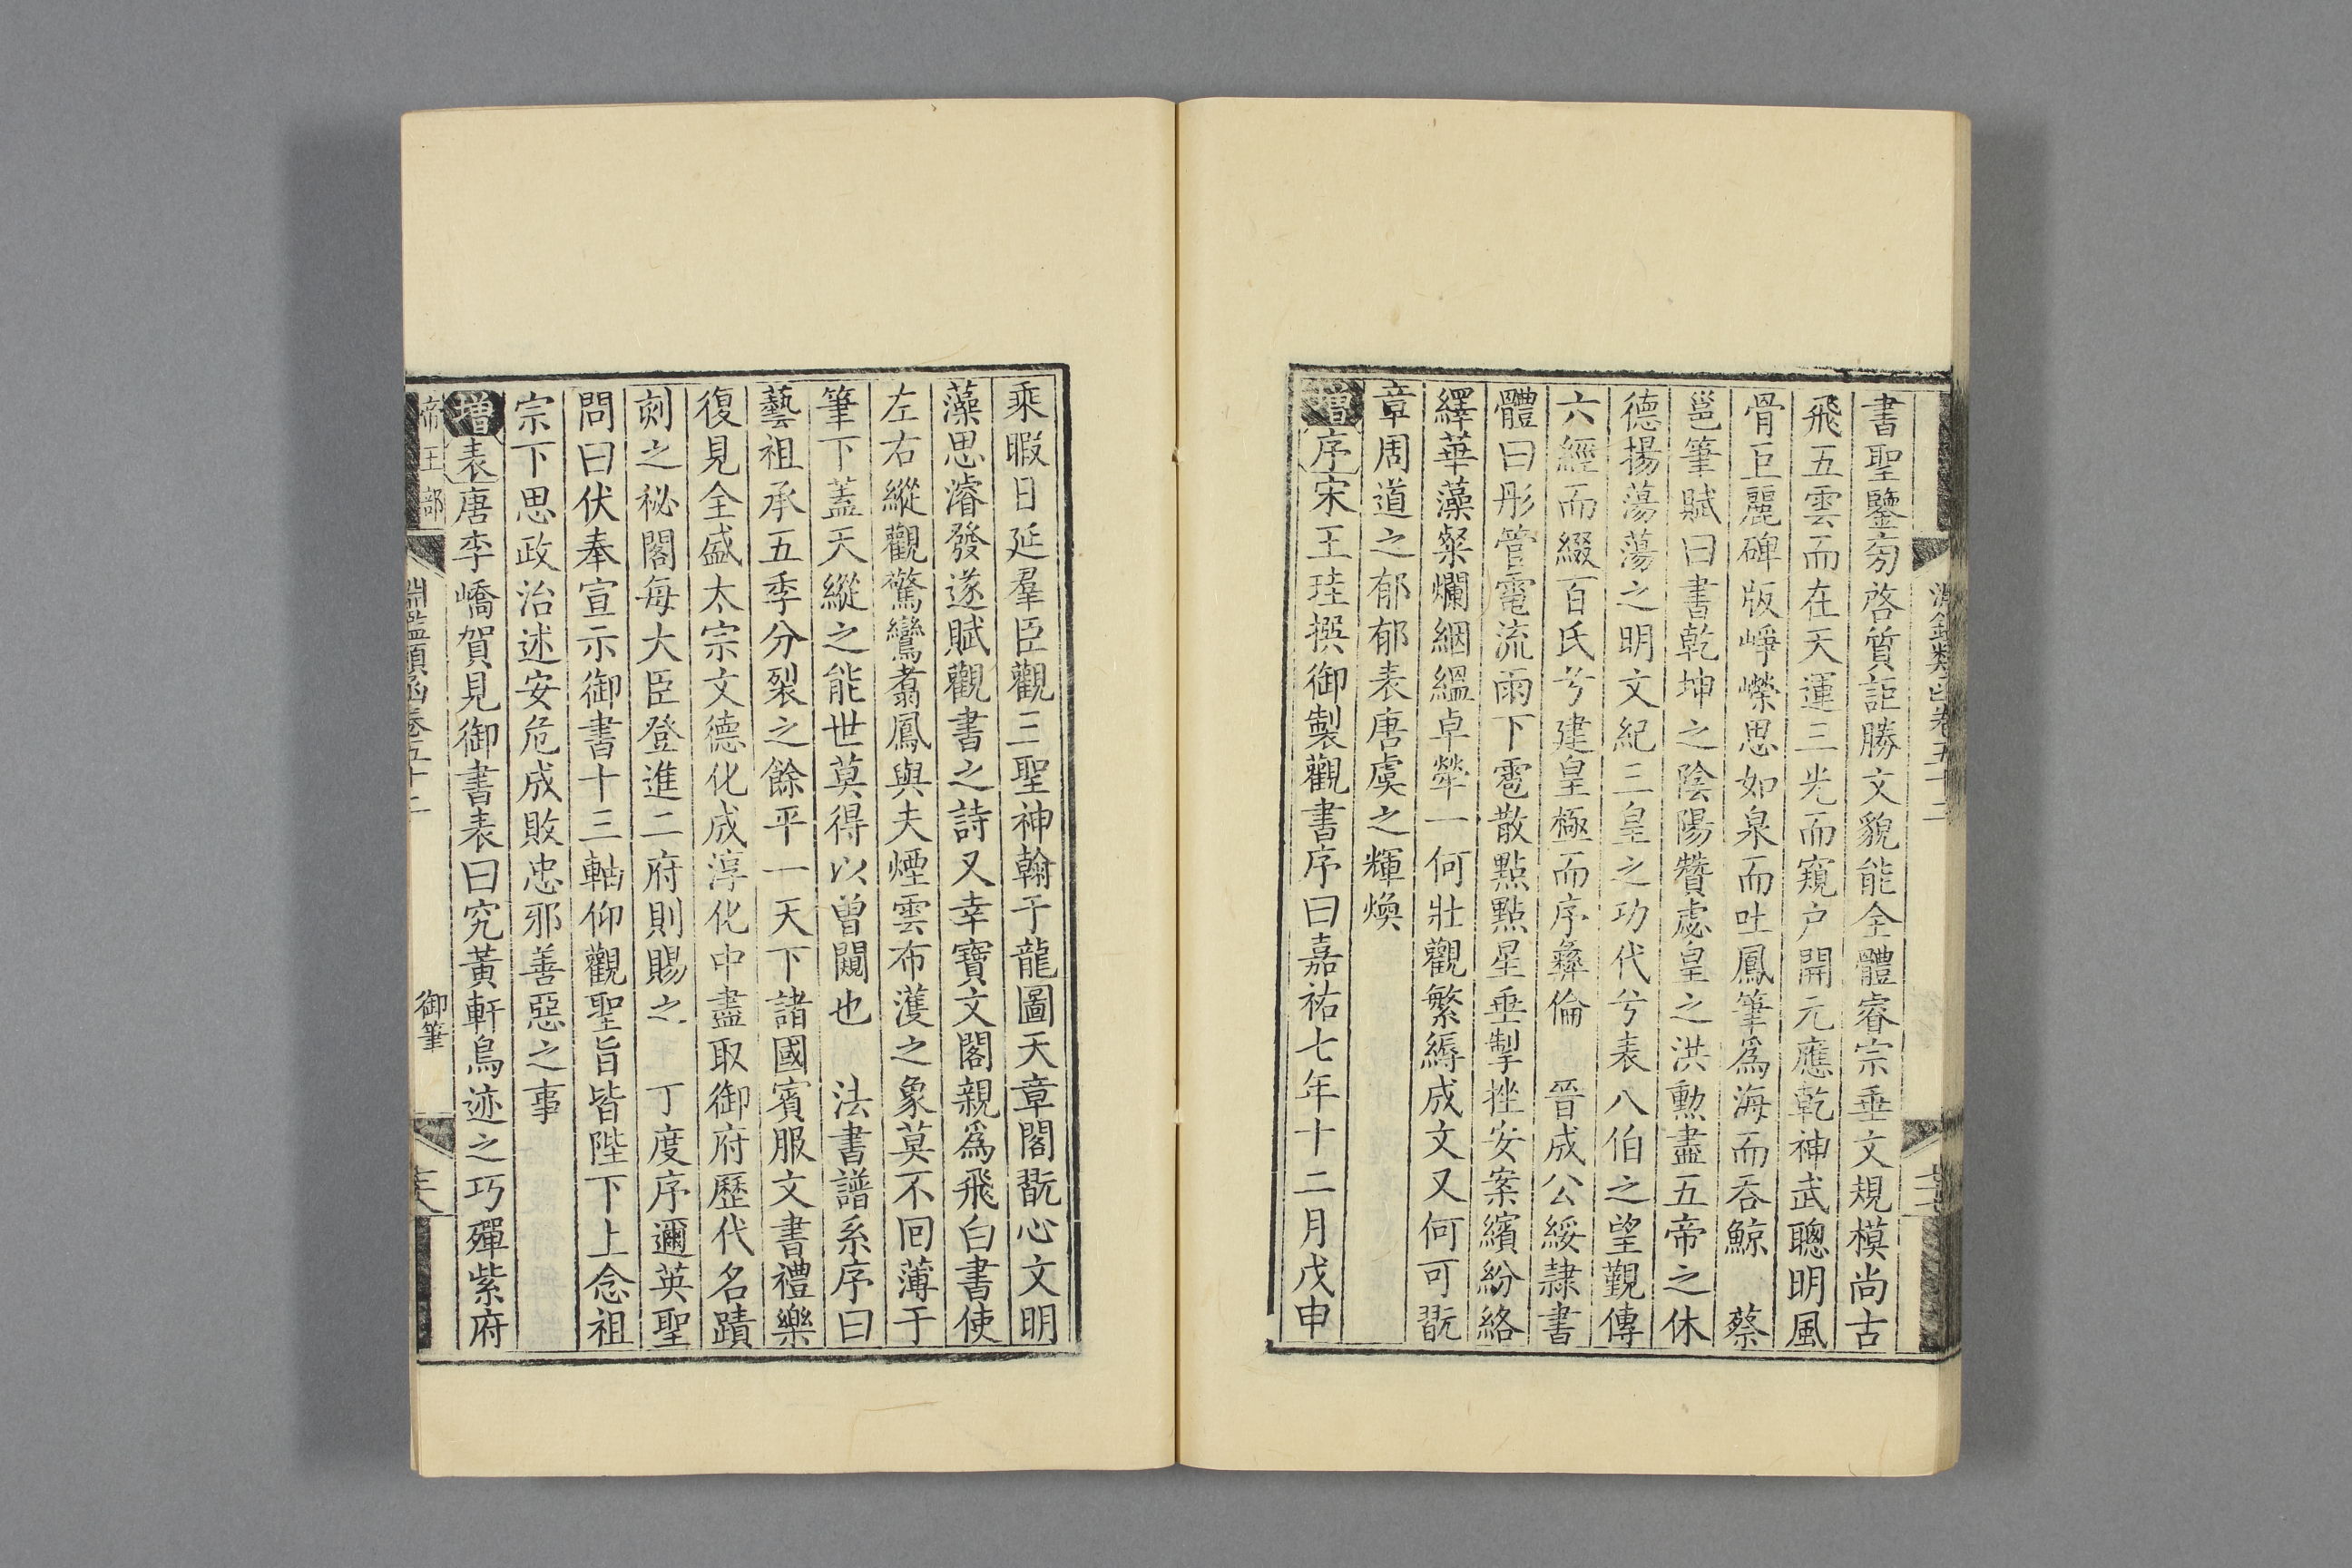 書聖鑒旁啓質詎勝文貌能全體睿宗垂文規模尚古
飛五雲而在天運三光而窺户開元應乾神武聰明風
骨巨麗碑版崢嶸思如泉而吐鳳筆爲海而吞鯨　蔡
邕筆賦曰書乾坤之陰陽贊虙皇之洪勲盡五帝之休
德揚蕩蕩之明文紀三皇之功代兮表八伯之望觐傳
六經而綴百氏兮建皇極而序彝倫　晉成公綏隸書
體曰彤管電流雨下雹散點黠星垂掣挫安案繽紛絡
繹華藻粲爛絪縕卓犖一何壯觀繁縟成文又何可翫
章周道之郁郁表唐虞之輝煥
增序宋王珪撰御製觀書序曰嘉祐七年十二月戊申
乘暇日延羣臣觀三聖神翰于龍圖天章閣翫心文明
藻思濬發遂賦觀書之詩又幸寶文閣親爲飛白書使
左右縱觀驚鸞翥鳳與夫煙雲布濩之象莫不回薄于
筆下蓋天縱之能世莫得以曽闚也　法書譜系序曰
藝祖承五季分裂之餘平一天下諸國賓服文書禮樂
復見全盛太宗文德化成淳化中盡取御府歷代名蹟
刻之祕閣每大臣登進二府則賜之　丁度序邇英聖
問曰伏奉宣示御書十三軸仰觀聖旨皆陛下上念祖
宗下思政治述安危成敗忠邪善惡之事
增表唐李嶠賀見御書表曰究黃軒鳥迹之巧殫紫府
帝王部　淵鑑類函卷五十二　御筆